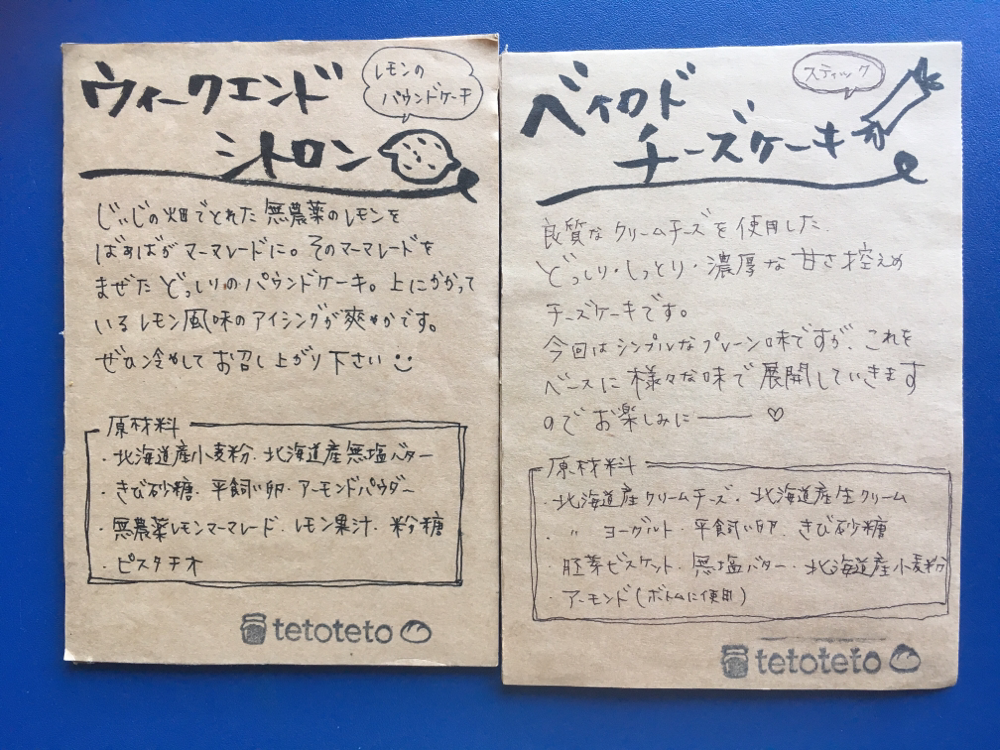 ウィークエンド
シトロン
レモンの
パウンドケーキ
じぃじの畑でとれた無農薬のレモンを
ばぁばがマーマレードに。そのマーマレードを
まぜたどっしりのパウンドケーキ。上にかかって
いるレモン風味のアイシングが爽やかです。
ぜひ冷やしてお召し上がり下さい
原材料
・北海道産小麦粉・北海道産無塩バター
・きび砂糖・平飼い卵・アーモンドパウダー
・無農薬レモンマーマレード・レモン果汁・粉糖
・ピスタチオ
tetoteto
ベイクド
チーズケーキ
スティック
良質なクリームチーズを使用した、
どっしり・しっとり・濃厚な甘さ控えめ
チーズケーキです。
今回はシンプルなプレーン味ですが、これを
ベースに様々な味で展開していきます
のでお楽しみに――♡
原材料
・北海道産クリームチーズ・北海道産生クリーム
・〃 ヨーグルト・平飼い卵・きび砂糖
・胚芽ビスケット・無塩バター・北海道産小麦粉
・アーモンド(ボトムに使用)
tetoteto